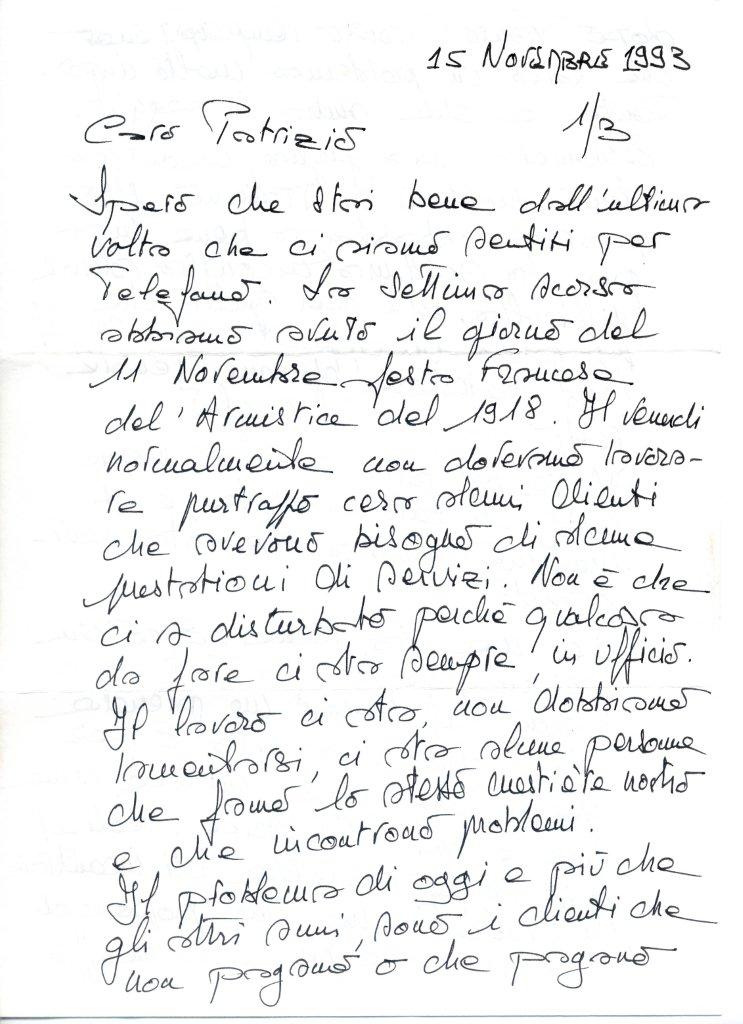 15 NOVEMBRE 1993
Caro Patrizio 1/3
Spero che stai bene dall'ultima
volta che ci siamo sentiti per
Telefono. La settima scorsa
abbiamo avuto il giorno del
11 Novembre festa Francese
del'Armistice del 1918. Il venerdi
normalmente non dovevamo lavora-
re purtroppo cera alcuni Clienti
che avevano bisogno di alcune
prestationi di servizi. Non è che
ci a disturbato perchè qualcosa
da fare ci sta sempre, in ufficio.
Il lavoro ci sta, non dobbiamo
lamentarsi, ci sta alcune persone
che fanno lo stesso mestière nostro
e che incontrano problemi.
Il problema di oggi e più che
gli altri anni, sono i clienti che
non pagano o che pagano